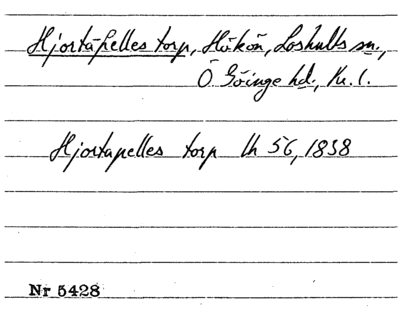 Hjortapelles torp, Hökön, Loshults sn.,
Ö Göinge hd., Kr. l.
Hjortapelles torp lh 56, 1838
Nr 5428